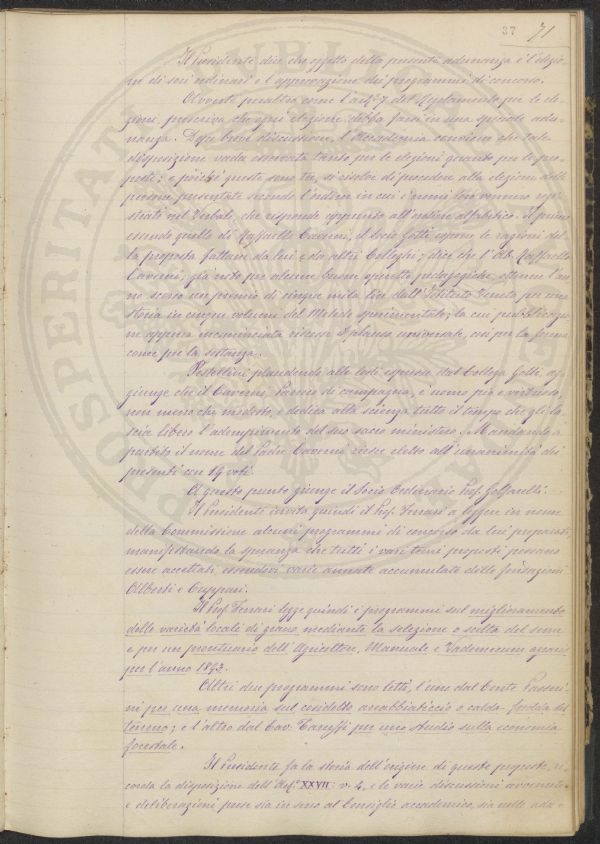 37 71
Il Presidente dice che oggetto della presente adunanza è l'elezio-
ne di soci ordinari e l'approvazione dei programmi di concorso.
Avverte peraltro come l'art.º 7 del Regolamento per le ele-
zioni, prescriva che ogni elezione debba farsi in una speciale adu-
nanza. Dopo breve discussione, l'Accademia conviene che tale
disposizione vada osservata tanto per le elezioni quanto per le pro-
poste; e poichè queste sono tre, si risolve di procedere alla elezione delle
persone presentate secondo l'ordine in cui i nomi loro vennero regi-
strati nel Verbale, che risponde appunto all'ordine alfabetico. Il primo
essendo quello di Raffaello Caverni, il Socio Gotti espone le ragioni del-
la proposta fattane da lui e da altri Colleghi; dice che l'Ab. Raffaello
Caverni, già noto per alcuni buoni opuscoli pedagogici, ottenne l'an-
no scorso un premio di cinque mila lire dall'Istituto Veneto per una
Storia in cinque volumi del Metodo sperimentale, la cui pubblicazio-
ne appena incominciata riscosse il plauso universale, così per la forma
come per la sostanza.
Pestellini plaudendo alle lodi espresse dal Collega Gotti, ag-
giunge che il Caverni, Parroco di campagna, è uomo pio e virtuoso,
non meno che modesto, e dedica alla scienza tutto il tempo che gli la-
scia libero l'adempimento del suo sacro ministero. Mandando a
partito il nome del Padre Caverni riesce eletto all'unanimità dei
presenti con 14 voti.
A questo punto giunge il Socio Ordinario Prof. Golfarelli.
Il Presidente invita quindi il Prof. Ferrari a leggere in nome
della Commissione alcuni programmi di concorso da lui preparati,
manifestando la speranza che tutti i vari temi proposti possano
essere accettati essendovi varie annate accumulate delle fondazioni
Alberti e Cuppari.
Il Prof. Ferrari legge quindi i programmi sul miglioramento
delle varietà locali di grano, mediante la selezione o scelta del seme
e per un prontuario dell'Agricoltore, Manuale e Vademecum agrario
per l'anno 1893.
Altri due programmi sono letti, l'uno dal Conte Passeri-
ni per una memoria sul cosidetto arrabbiaticcio o caldo-fredda del
terreno; e l'altro dal Cav. Caruffi per uno Studio sulla economia
forestale.
Il Presidente fa la storia dell'origine di queste proposte, ri-
corda la disposizione dell'Art.º XXVII v. 4, e le varie discussioni avvenute
e deliberazioni prese sia in seno al Consiglio accademico, sia nelle adu-